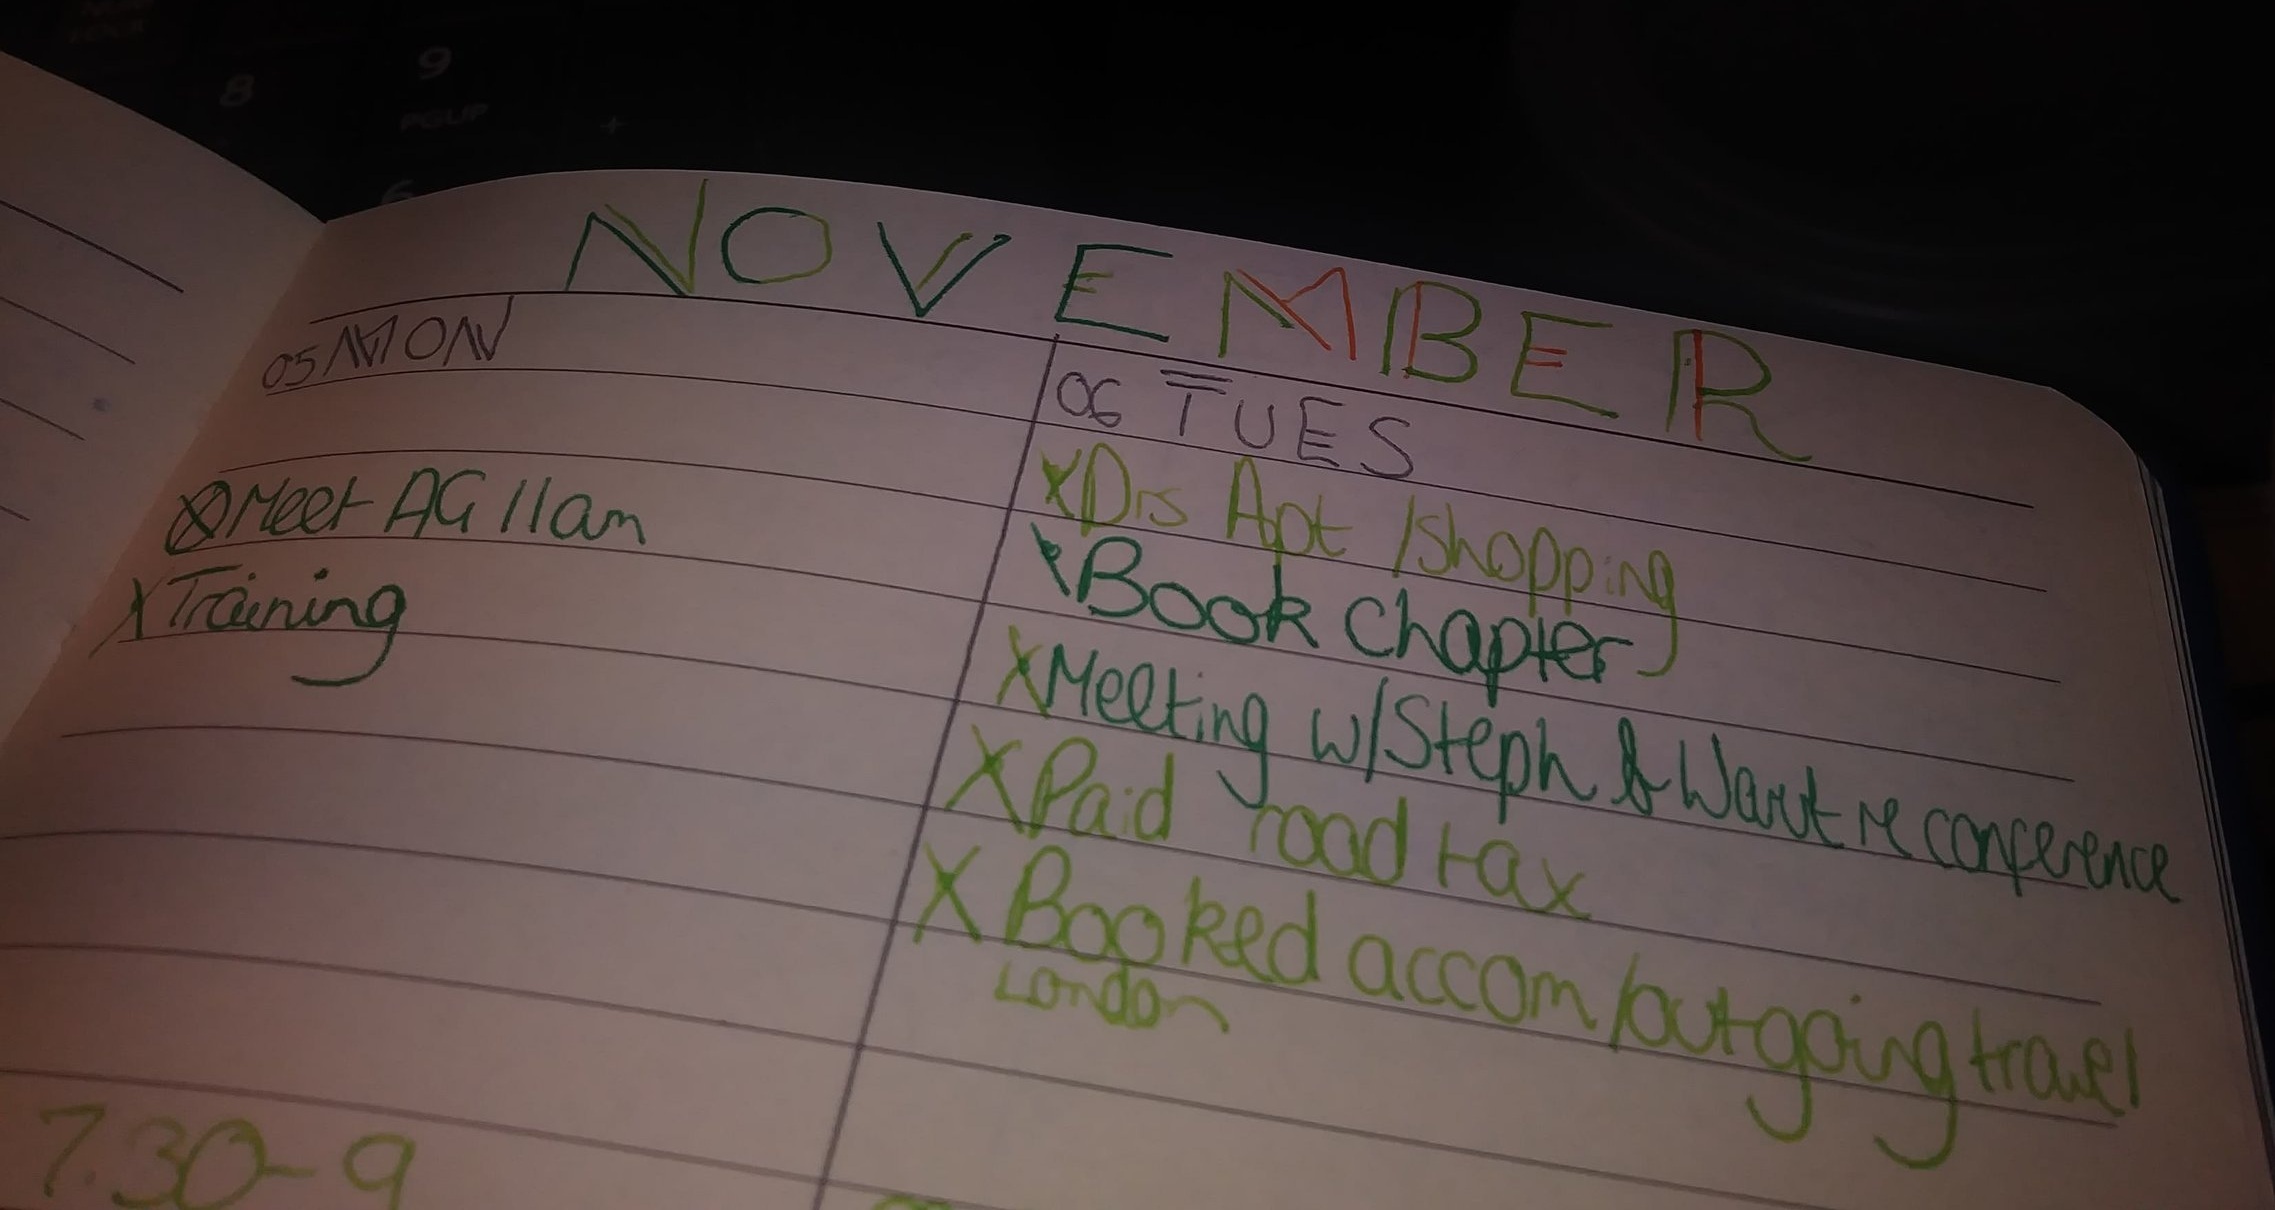 8
9
PGUP
+
6
NOVEMBER
05 MON
⊗ Meet AG 11am
X Training
7.30-9
06 TUES
X Drs Apt /shopping
\ Book Chapter
X Meeting w/Steph & Wout re conference
X Paid road tax
X Booked accom/outgoing travel
London